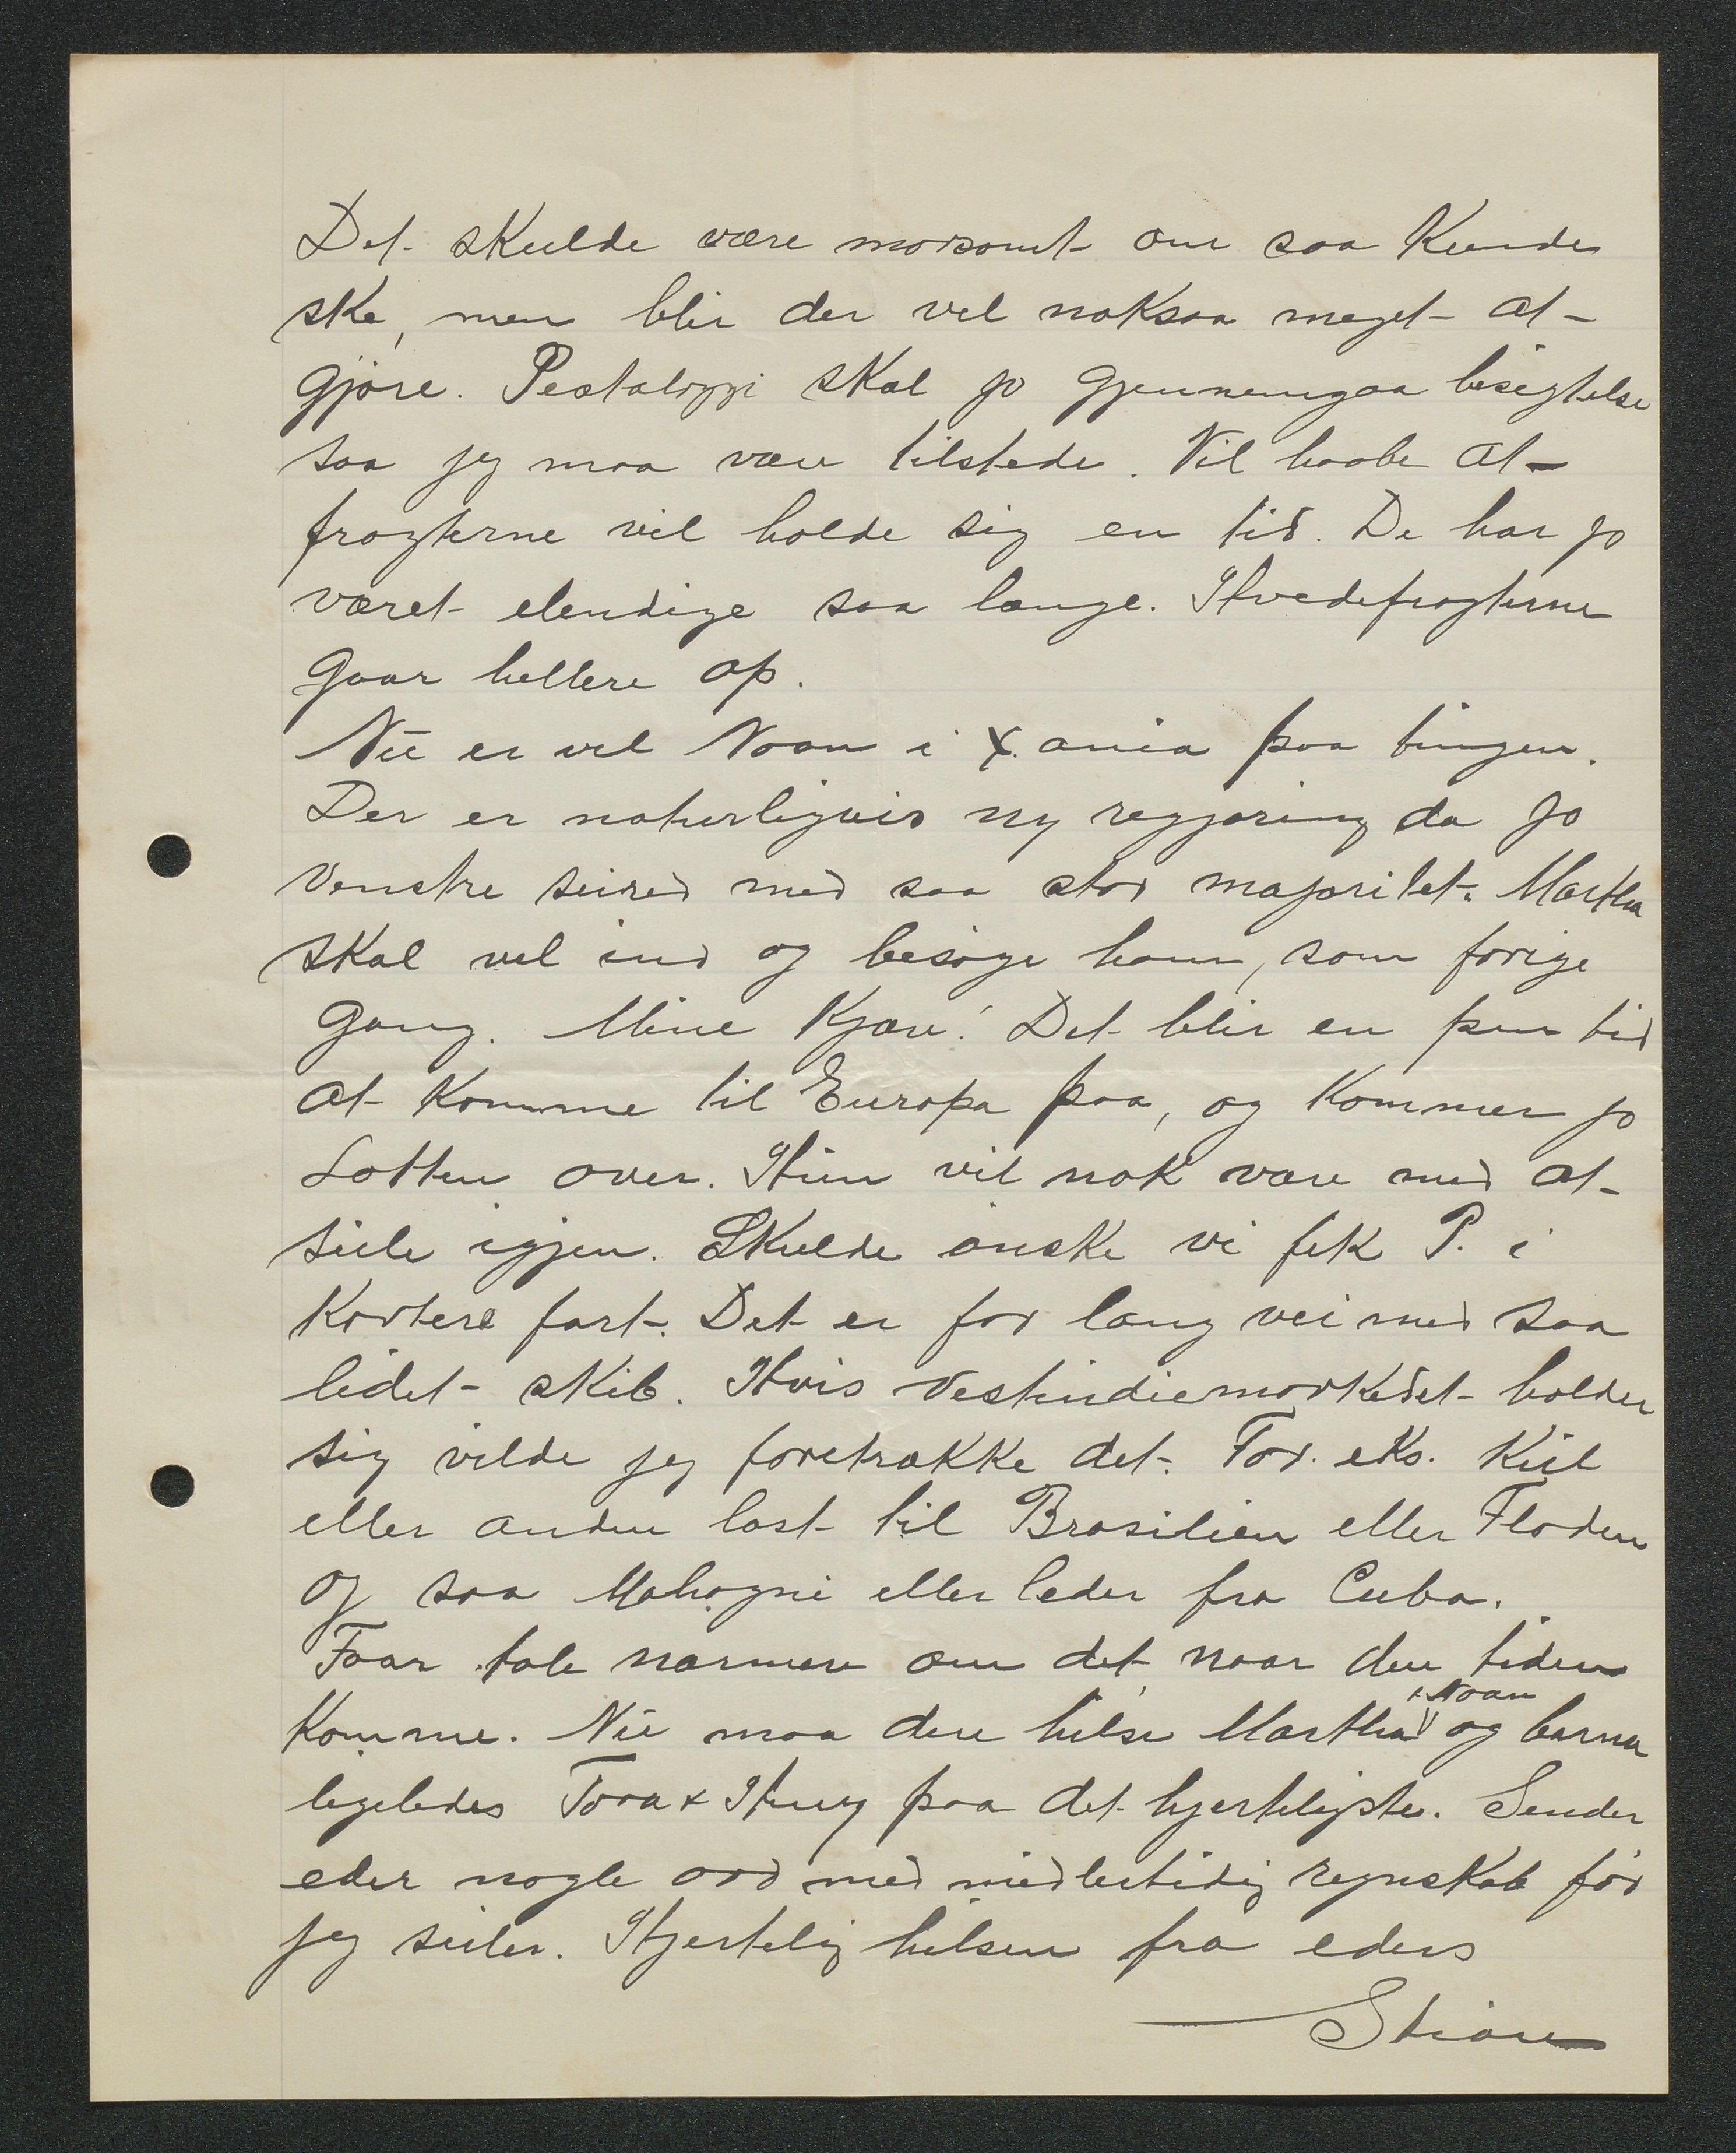 Det skulde være morsomt om saa kunde
ske, men blir der vel noksaa meget at
gjøre. Pestalozzi skal jo gjennemgaa besigtelse
saa jeg maa være tilstede. Vil haabe at
fragterne vil holde sig en tid. De har jo
været elendige saa længe. Hvedefragterne
gaar hellere op.
Nu er vel Noan i X.ania paa tingen.
Der er naturligvis ny regjæring da jo
Venstre seired med saa stor majoritet. Martha
skal vel ind og besøge ham, som forige
gang. Mine Kjære! Det blir en pen tid
at komme til Europa paa, og kommer jo
Lotten over. Hun vil nok være med at
seile igjen. Skulde ønske vi fik P. i
kortere fart. Det er for lang vei med saa
lidet skib. Hvis Vestindiemarkedet holder
sig vilde jeg foretrække det. For. eks. Kul
eller anden last til Brasilien eller Floden
og saa Mahogni eller leder fra Cuba.
Faar tale nærmere om det, naar den tiden
komme. Nu maa dere hilse Martha, Noan og barna
ligeledes Tora & Huy paa det hjerteligste. Sender
eder nogle ord med midlertidig regnskab før
jeg seiler. Hjertelig hilsen fra eders